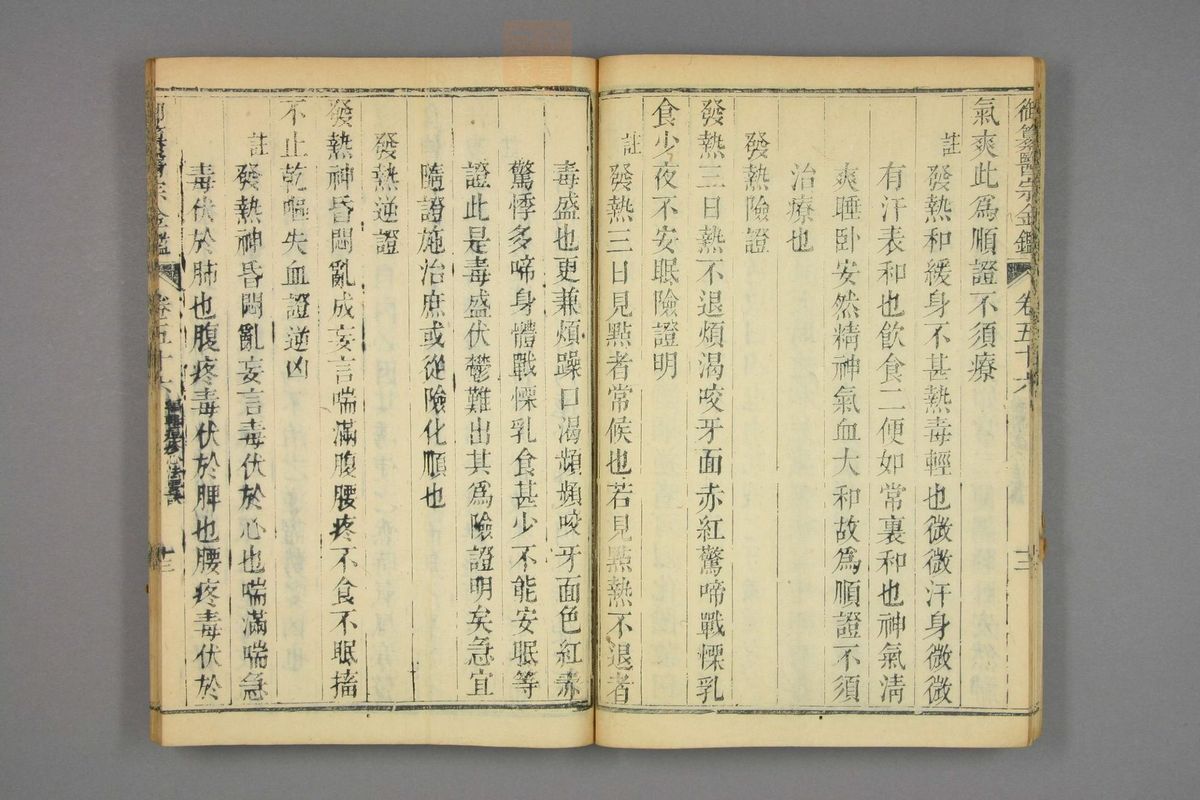 御篡醫宗金鑑 卷五十六 十三
氣爽此爲順證不須療
註 發熱和緩身不甚熱毒輕也微微汗身微微
有汗表和也飲食二便如常裏和也神氣淸
爽睡卧安然精神氣血大和故爲順證不須
治療也
發熱險證
發熱三日熱不退煩渴咬牙面赤紅驚啼戰慄乳
食少夜不安眠險證明
註 發熱三日見點者常候也若見點熱不退者
毒盛也更兼煩躁口渴頻頻咬牙面色紅赤
驚悸多啼身體戰慄乳食甚少不能安眠等
證此是毒盛伏鬱難出其爲險證明矣急宜
隨證施治庶或從險化順也
發熱逆證
發熱神昏悶亂成妄言喘滿腹腰疼不食不眠搐
不止乾嘔失血證逆凶
註 發熱神昏悶亂妄言毒伏於心也喘滿喘急
毒伏於肺也腹疼毒伏於脾也腰疼毒伏於
醫宗金鑑 卷五十六 十三